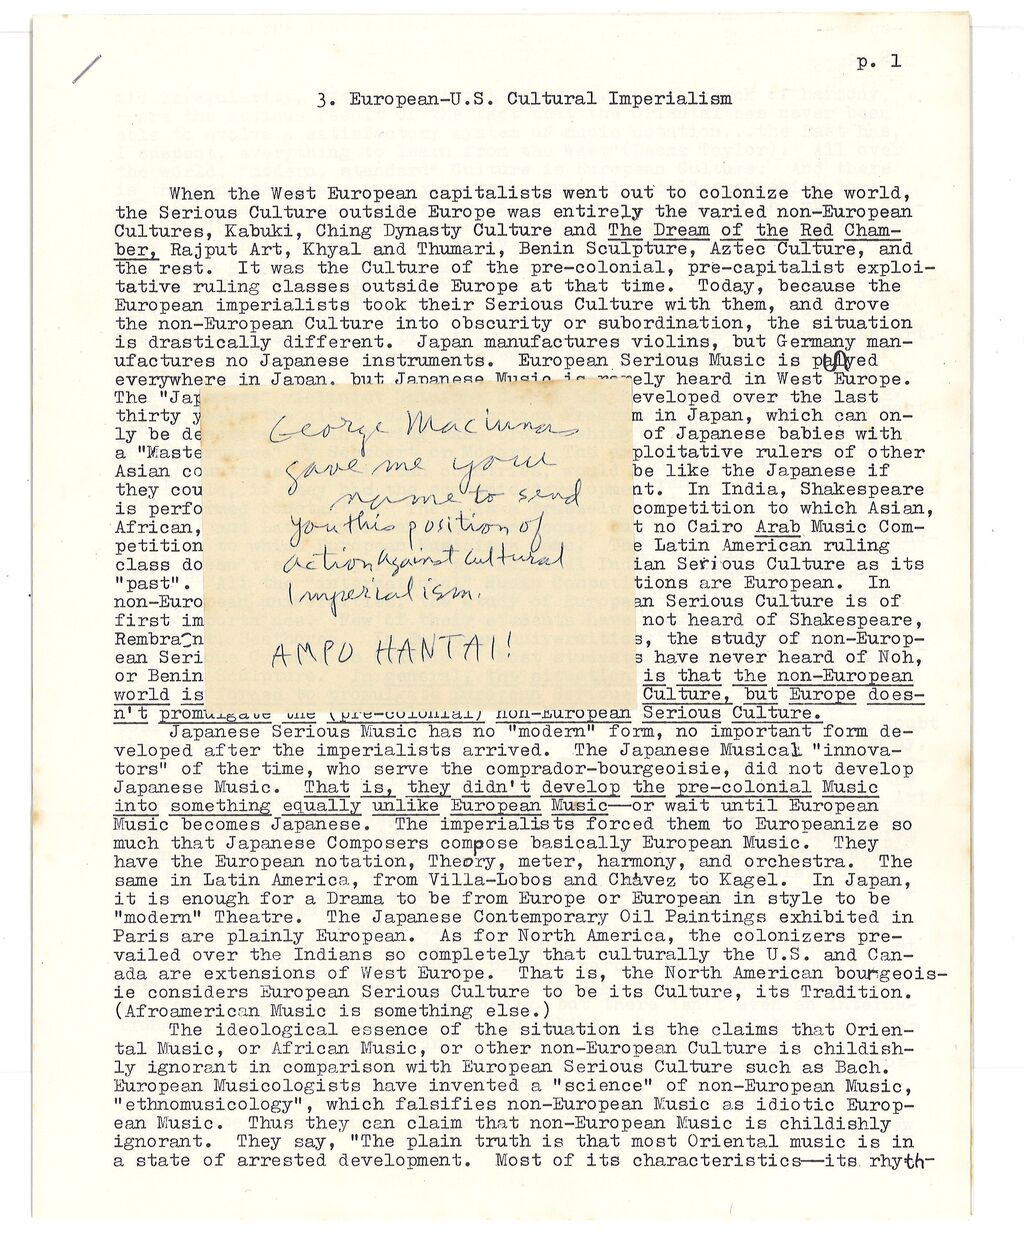 p. 1
3. European-U.S. Cultural Imperialism
When the West European capitalists went out to colonize the world,
the Serious Culture outside Europe was entirely the varied non-European
Cultures, Kabuki, Ching Dynasty Culture and The Dream of the Red Cham-
ber, Rajput Art, Khyal and Thumari, Benin Sculpture, Aztec Culture, and
the rest. It was the Culture of the pre-colonial, pre-capitalist exploi-
tative ruling classes outside Europe at that time. Today, because the
European imperialists took their Serious Culture with them, and drove
the non-European Culture into obscurity or subordination, the situation
is drastically different. Japan manufactures violins, but Germany man-
ufactures no Japanese instruments. European Serious Music is played
everywhere in Japan, but Japanese Music is rarely heard in West Europe.
The "Jap eveloped over the last
thirty y m in Japan, which can on-
ly be de of Japanese babies with
a "Maste ploitative rulers of other
Asian co be like the Japanese if
they cou nt. In India, Shakespeare
is perfo competition to which Asian,
African, t no Cairo Arab Music Com-
petition e Latin American ruling
class do ian Serious Culture as its
"past". tions are European. In
non-Euro an Serious Culture is of
first im not heard of Shakespeare,
Rembran s, the study of non-Europ-
ean Seri s have never heard of Noh,
or Benin is that the non-European
world is Culture, but Europe does-
n't promulgate the (pre-colonial) non-European Serious Culture.
George Maciunas
gave me your
name to send
you this position of
action against cultural
Imperialism.
AMPO HANTAI!
Japanese Serious Music has no "modern" form, no important form de-
veloped after the imperialists arrived. The Japanese Musical "innova-
tors" of the time, who serve the comprador-bourgeoisie, did not develop
Japanese Music. That is, they didn't develop the pre-colonial Music
into something equally unlike European Music—or wait until European
Music becomes Japanese. The imperialists forced them to Europeanize so
much that Japanese Composers compose basically European Music. They
have the European notation, Theory, meter, harmony, and orchestra. The
same in Latin America, from Villa-Lobos and Chávez to Kagel. In Japan,
it is enough for a Drama to be from Europe or European in style to be
"modern" Theatre. The Japanese Contemporary Oil Paintings exhibited in
Paris are plainly European. As for North America, the colonizers pre-
vailed over the Indians so completely that culturally the U.S. and Can-
ada are extensions of West Europe. That is, the North American bourgeois-
ie considers European Serious Culture to be its Culture, its Tradition.
(Afroamerican Music is something else.)
The ideological essence of the situation is the claims that Orien-
tal Music, or African Music, or other non-European Culture is childish-
ly ignorant in comparison with European Serious Culture such as Bach.
European Musicologists have invented a "science" of non-European Music,
"ethnomusicology", which falsifies non-European Music as idiotic Europ-
ean Music. Thus they can claim that non-European Music is childishly
ignorant. They say, "The plain truth is that most Oriental music is in
a state of arrested development. Most of its characteristics—its rhyth-